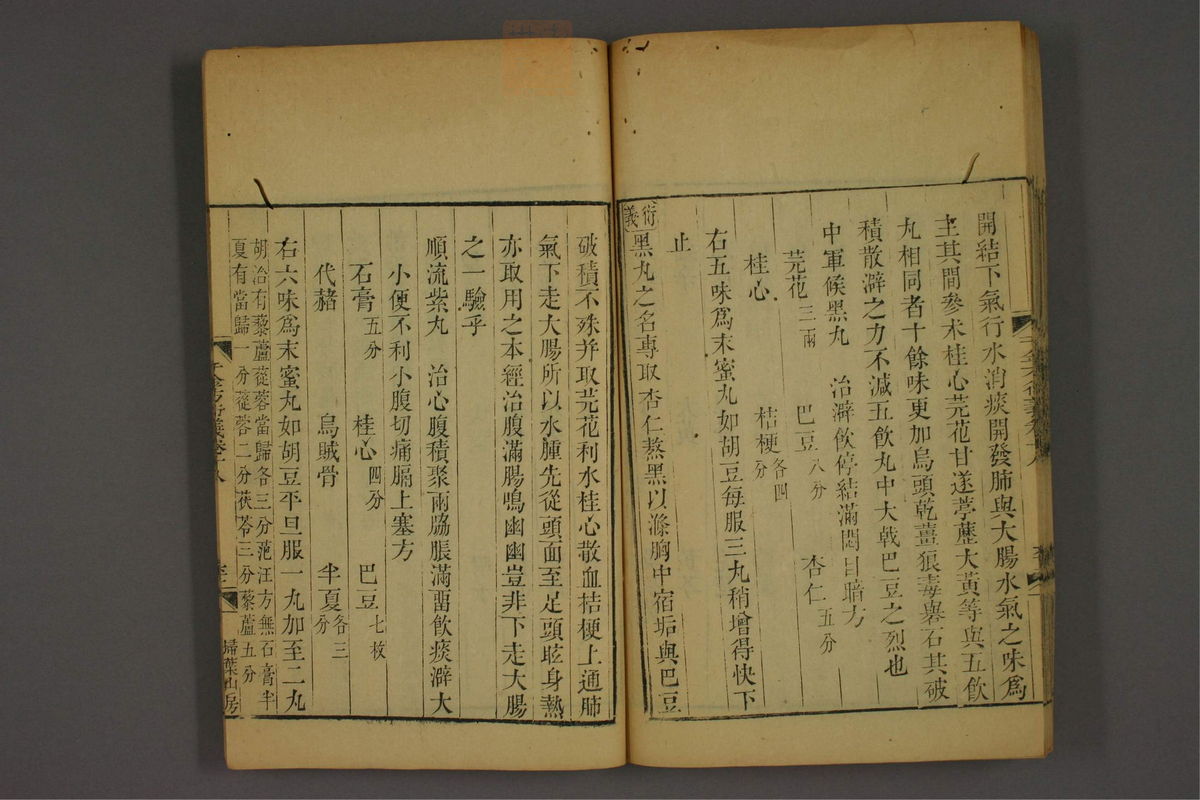 開結下氣行水消痰開發肺與大腸水氣之味爲
主其間參朮桂心芫花甘遂葶藶大黃等與五飲
丸相同者十餘味更加烏頭乾薑狼毒礜石其破
積散澼之力不減五飲丸中大戟巴豆之烈也
中軍候黑丸　治澼飲停結滿悶目暗方
芫花三兩　巴豆八分　杏仁五分
桂心　桔梗各四分
右五味爲末蜜丸如胡豆每服三丸稍增得快下
止
衍義黑丸之名專取杏仁熬黑以滌胸中宿垢與巴豆
破積不殊并取芫花利水桂心散血桔梗上通肺
氣下走大腸所以水腫先從頭面至足頭眩身熱
亦取用之本經治腹滿腸鳴幽幽豈非下走大腸
之一驗乎
順流紫丸　治心腹積聚兩脇脹滿畱飲痰澼大
小便不利小腹切痛膈上塞方
石膏五分　桂心四分　巴豆七枚
代赭　烏賊骨　半夏各三分
右六味爲末蜜丸如胡豆平旦服一丸加至二丸
胡洽有藜蘆蓯蓉當歸各三分范汪方無石膏半
夏有當歸一分蓯蓉二分茯苓三分藜蘆五分
掃葉山房